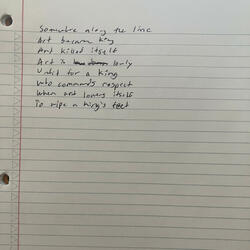 Somewhere along the line
Art became king
And killed itself
Art is lowly
Unfit for a king
Who commands respect
When art lowers itself
To wipe a king's feet